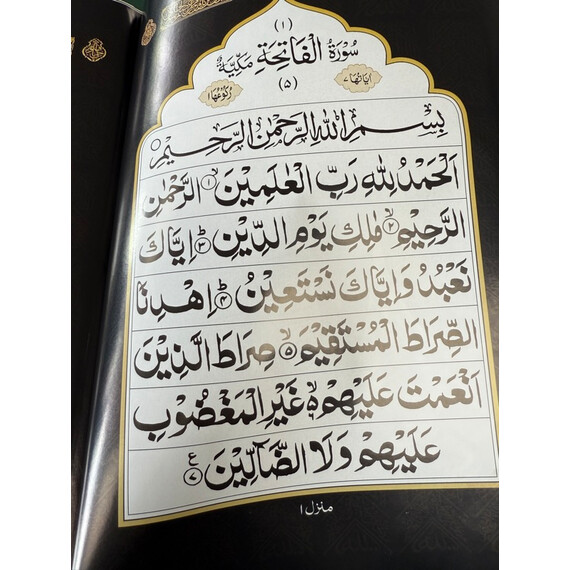 (۱)
سُوْرَةُ الْفَاتِحَةِ مَكِّيَّةٌ
اٰيَاتُهَا ۷
(۵)
رُكُوْعُهَا ۱
بِسْمِ اللّٰهِ الرَّحْمٰنِ الرَّحِيْمِ ○
اَلْحَمْدُ لِلّٰهِ رَبِّ الْعٰلَمِيْنَ ۙ﴿۱﴾ الرَّحْمٰنِ
الرَّحِيْمِ ۙ﴿۲﴾ مٰلِكِ يَوْمِ الدِّيْنِ ؕ﴿۳﴾ اِيَّاكَ
نَعْبُدُ وَاِيَّاكَ نَسْتَعِيْنُ ؕ﴿۴﴾ اِهْدِنَا
الصِّرَاطَ الْمُسْتَقِيْمَ ۙ﴿۵﴾ صِرَاطَ الَّذِيْنَ
اَنْعَمْتَ عَلَيْهِمْ ۙ۬ۙ﴿۶﴾ غَيْرِ الْمَغْضُوْبِ
عَلَيْهِمْ وَلَا الضَّآلِّيْنَ ﴿۷﴾ ع
منزل ۱